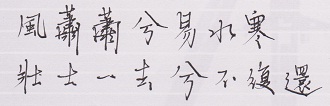 風蕭蕭兮易水寒
壯士一去兮不復還